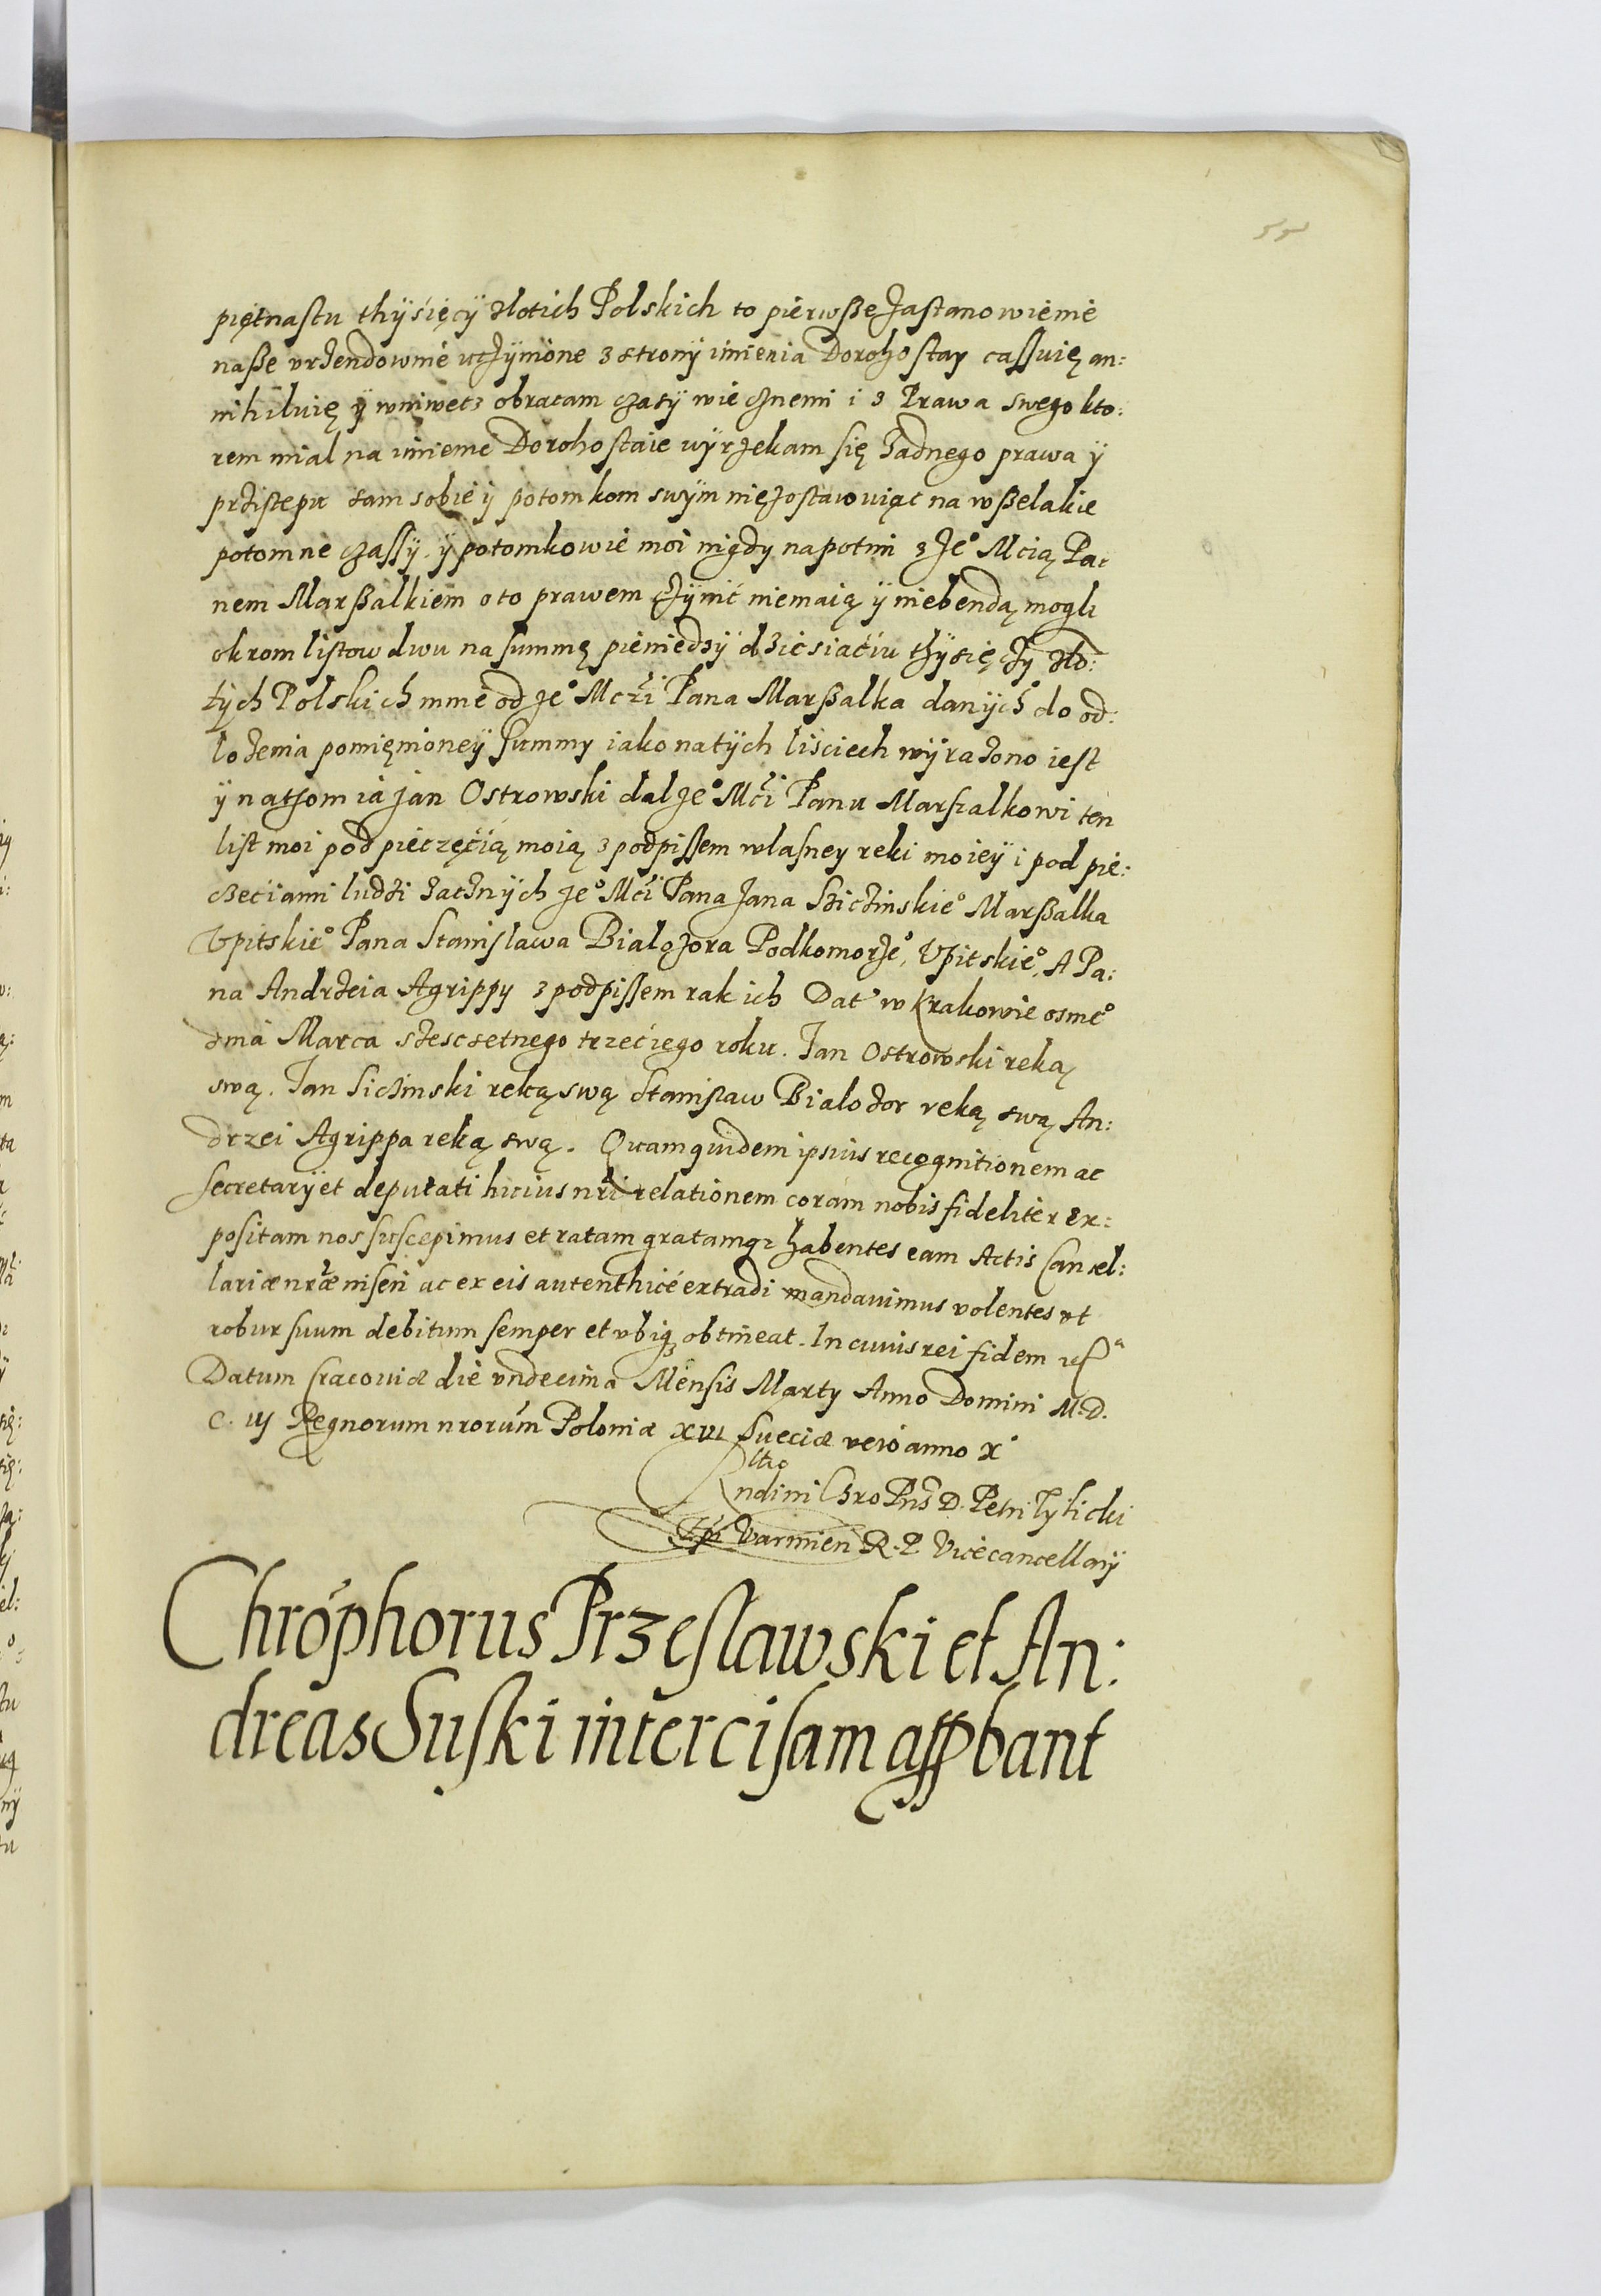 55
piętnastu thÿsięcÿ złotich Polskich to pierwsze zastanowienie
nasze vrzendownie uczÿnione z strony imienia Dorohostay cassuię an:
nihiluię ÿ wniwetz obracam czasÿ wiecznemi i z Prawa swego kto:
rem mial na imienie Dorohostaie wÿrzekam się żadnego prawa ÿ
przistepu sam sobie ÿ potomkom swÿm nie zostawuiąc na wszelakie
potomne czassÿ. ÿ potomkowie moi nigdy napotim z Je° Mcią Pa:
nem Marszalkiem o to prawem czÿnić niemaią ÿ niebendą mogli
okrom listow dwu na summę pieniedzÿ dziesiaćiu thÿsięczÿ zło:
tÿch Polskich mnie od Je° Mczi Pana Marszalka danÿch do od:
lożenia pomięnioneÿ summy iako na tÿch lisciech wÿrażono iest
ÿ natżom ia Jan Ostrowski dal Je° Mći Panu Marszalkowi ten
list moi pod pieczęćią moią z podpissem wlasney reki moieÿ i pod pie:
czeciami ludzi zacznÿch Je° Mći Pana Jana Sziczinskie° Marszalka
Vpitskie° Pana Stanislawa Bialozora Podkomorze°, Vpitskie°, A Pa:
na Andrzeia Agrippy z podpissem rak ich Dat' w Krakowie osme°
dnia Marca szescsetnego trzećiego roku. Jan Ostrowski reką
swą. Jan Siczinski reką swą Stanislaw Bialozor reką swą An:
drzei Agrippa reką swą. Quam quidem ipsius recognitionem ac
secretarÿ et deputati huius nr̃i relationem coram nobis fideliter ex:
positam nos suscepimus et ratam gratamqz habentes eam Actis Cancel:
lariæ nr̃æ inseri ac ex eis autenthicè extradi mandauimus volentes vt
robur suum debitum semper et vbiqz obtineat. In cuius rei fidem
Datum Cracouiæ die vndecima Mensis Marty Anno Domini M. D.
C. iij Regnorum nrorum Poloniæ XVI Sueciæ vero anno X°
Rltio
Rndimi Chro Pnis D. Petri Tylicki
Epi Varmien R. P. Vicecancellarÿ
Chrõphorus Przeslawski et An:
dreas Suski intercisam appbant